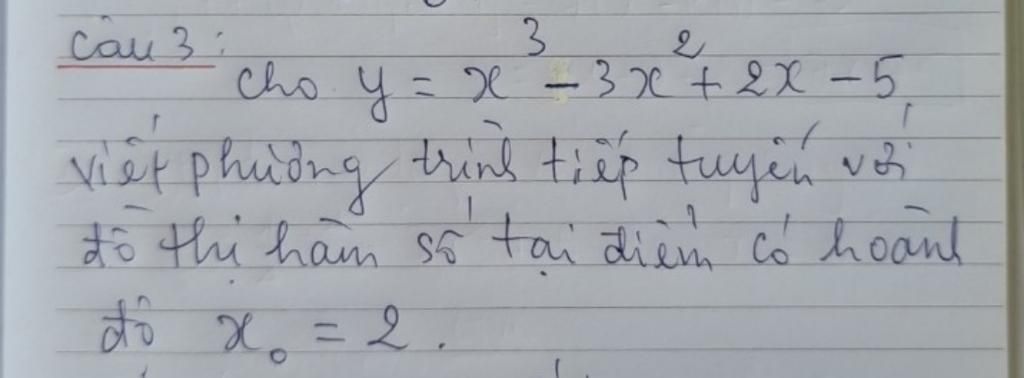 Câu 3:
Cho y = x³ - 3x² + 2x - 5,
viết phương trình tiếp tuyến với
đồ thị hàm số tại điểm có hoành
độ x₀ = 2.